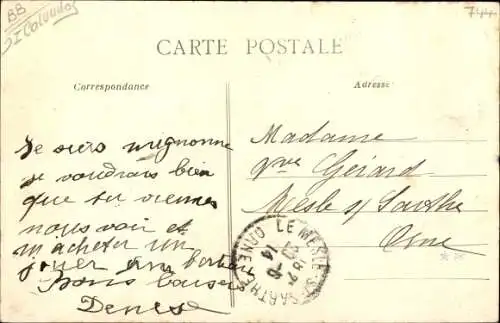 BB
Calvados
744
CARTE POSTALE
Correspondance
Adresse
Je suis mignonne
je voudrais bien
que tu viennes
nous voir et
m'acheter un
jouer
Bons baisers
Denise
Madame
Vve Gérard
Mesle s/ Sarthe
Orne
LE MESLE-S-SARTHE
ORNE